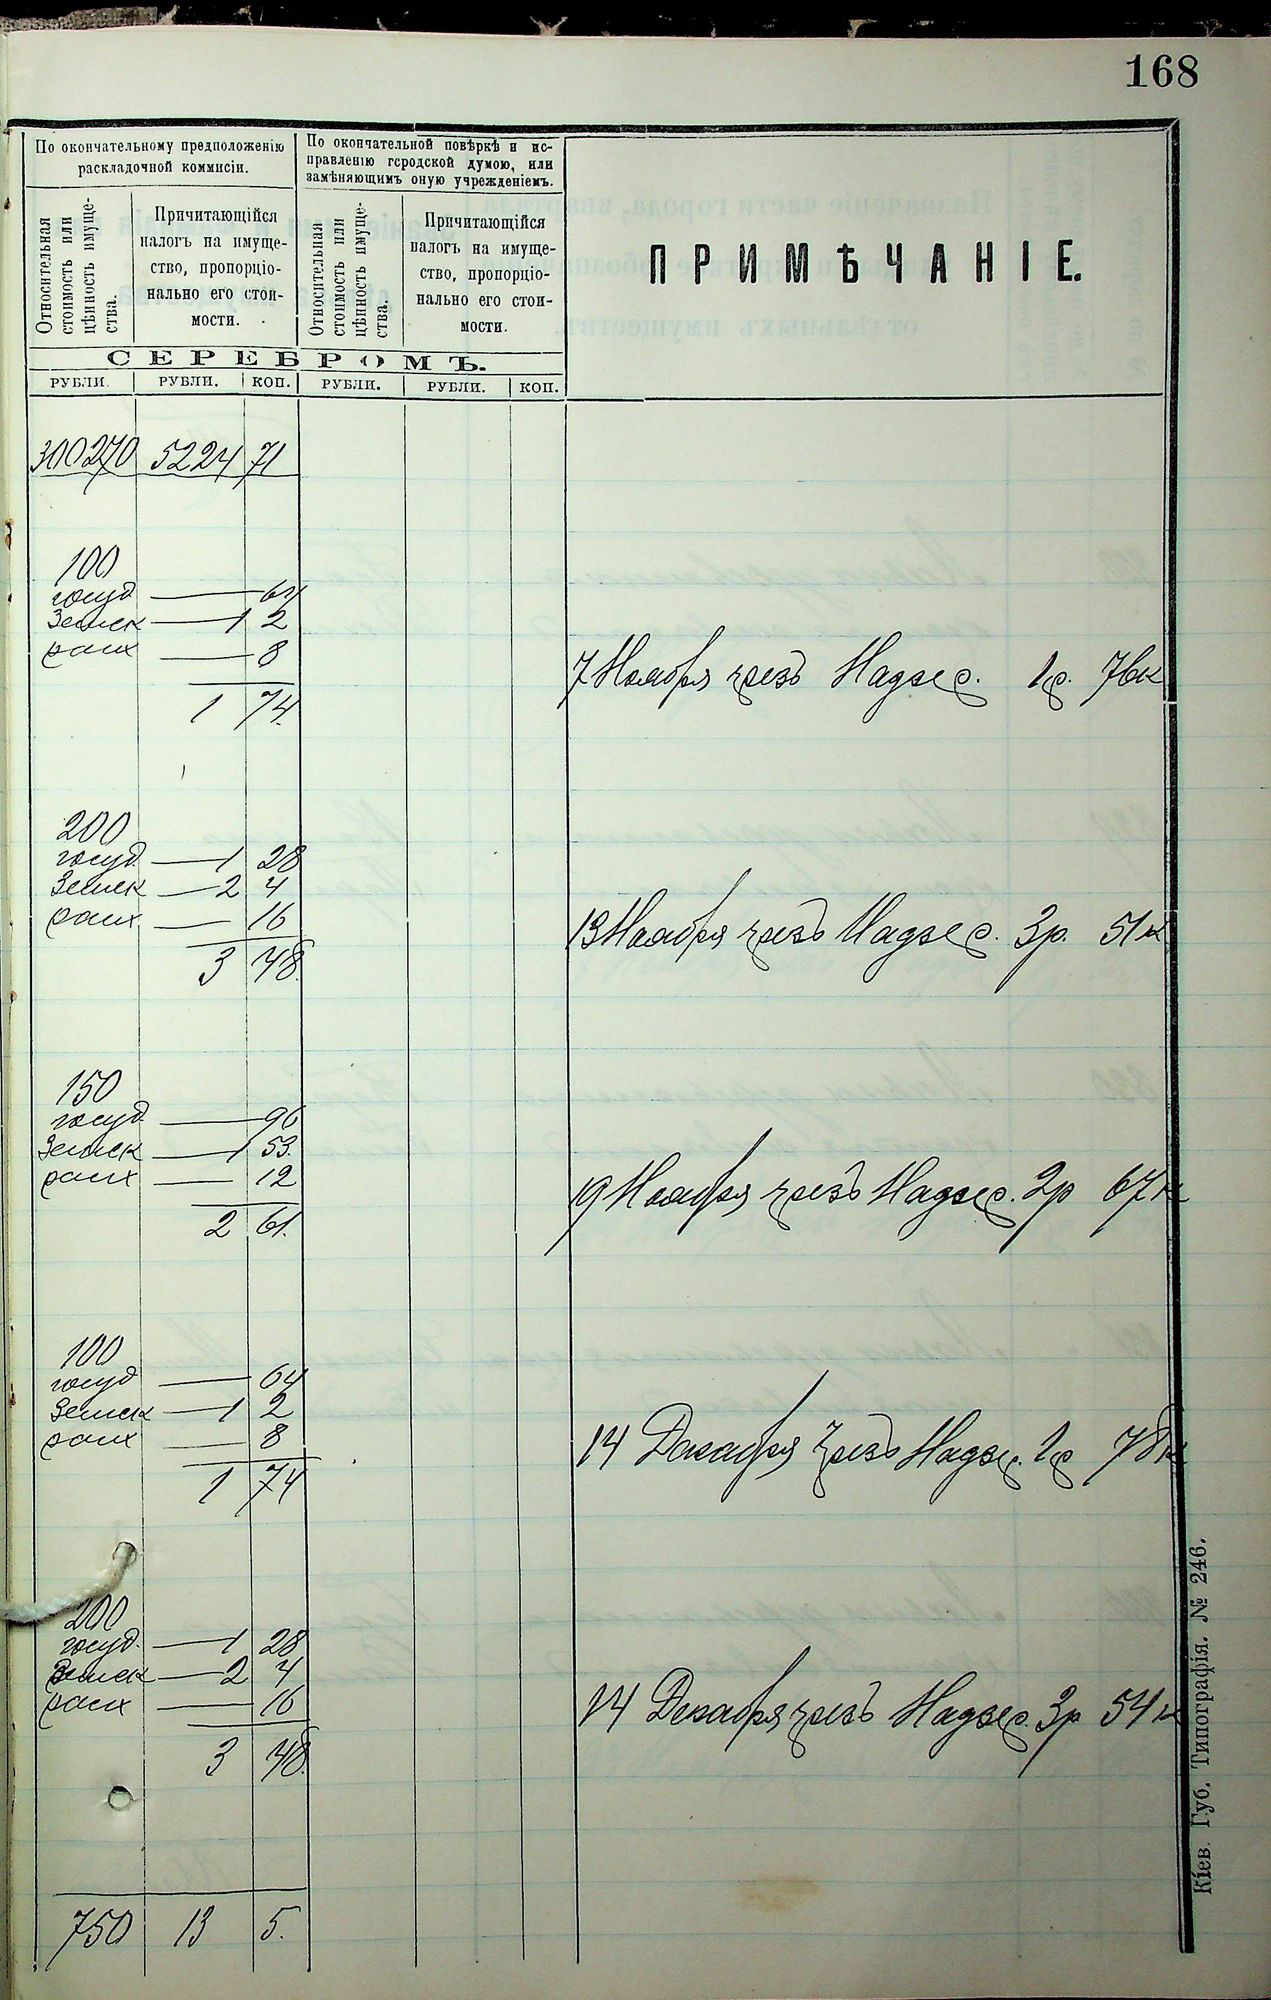 168
По окончательному предположенію
раскладочной коммисіи.
По окончательной повѣркѣ и ис-
правленію городской думою, или
замѣняющимъ оную учрежденіемъ.
Относительная
стоимость или
цѣнность имуще-
ства.
Причитающійся
налогъ на имуще-
ство, пропорціо-
нально его стои-
мости.
Относительная
стоимость или
цѣнность имуще-
ства.
Причитающійся
налогъ на имуще-
ство, пропорціо-
нально его стои-
мости.
ПРИМѢЧАНІЕ.
СЕРЕБРОМЪ.
РУБЛИ. РУБЛИ. КОП. РУБЛИ. РУБЛИ. КОП.
300270 5224 71
100
госуд — 64
Земск — 1 2
— 8
7 Ноября чрезъ Надзер. 1р. 76к
1 74.
200
госуд — 1 28
Земск — 2 4
— 16
13 Ноября чрезъ Надзер. 3р. 51к
3 48.
150
госуд — 96
Земск — 1 53.
— 12
19 Ноября чрезъ Надзер. 2р 67к
2 61.
100
госуд — 64
Земск — 1 2
— 8
14 Декабря чрезъ Надзр. 1р 78к
1 74
200
госуд. — 1 28
Земск — 2 4
— 16
14 Декабря чрезъ Надзер. 3р 54к
3 48.
750 13 5.
Кіев. Губ. Типографія. № 246.